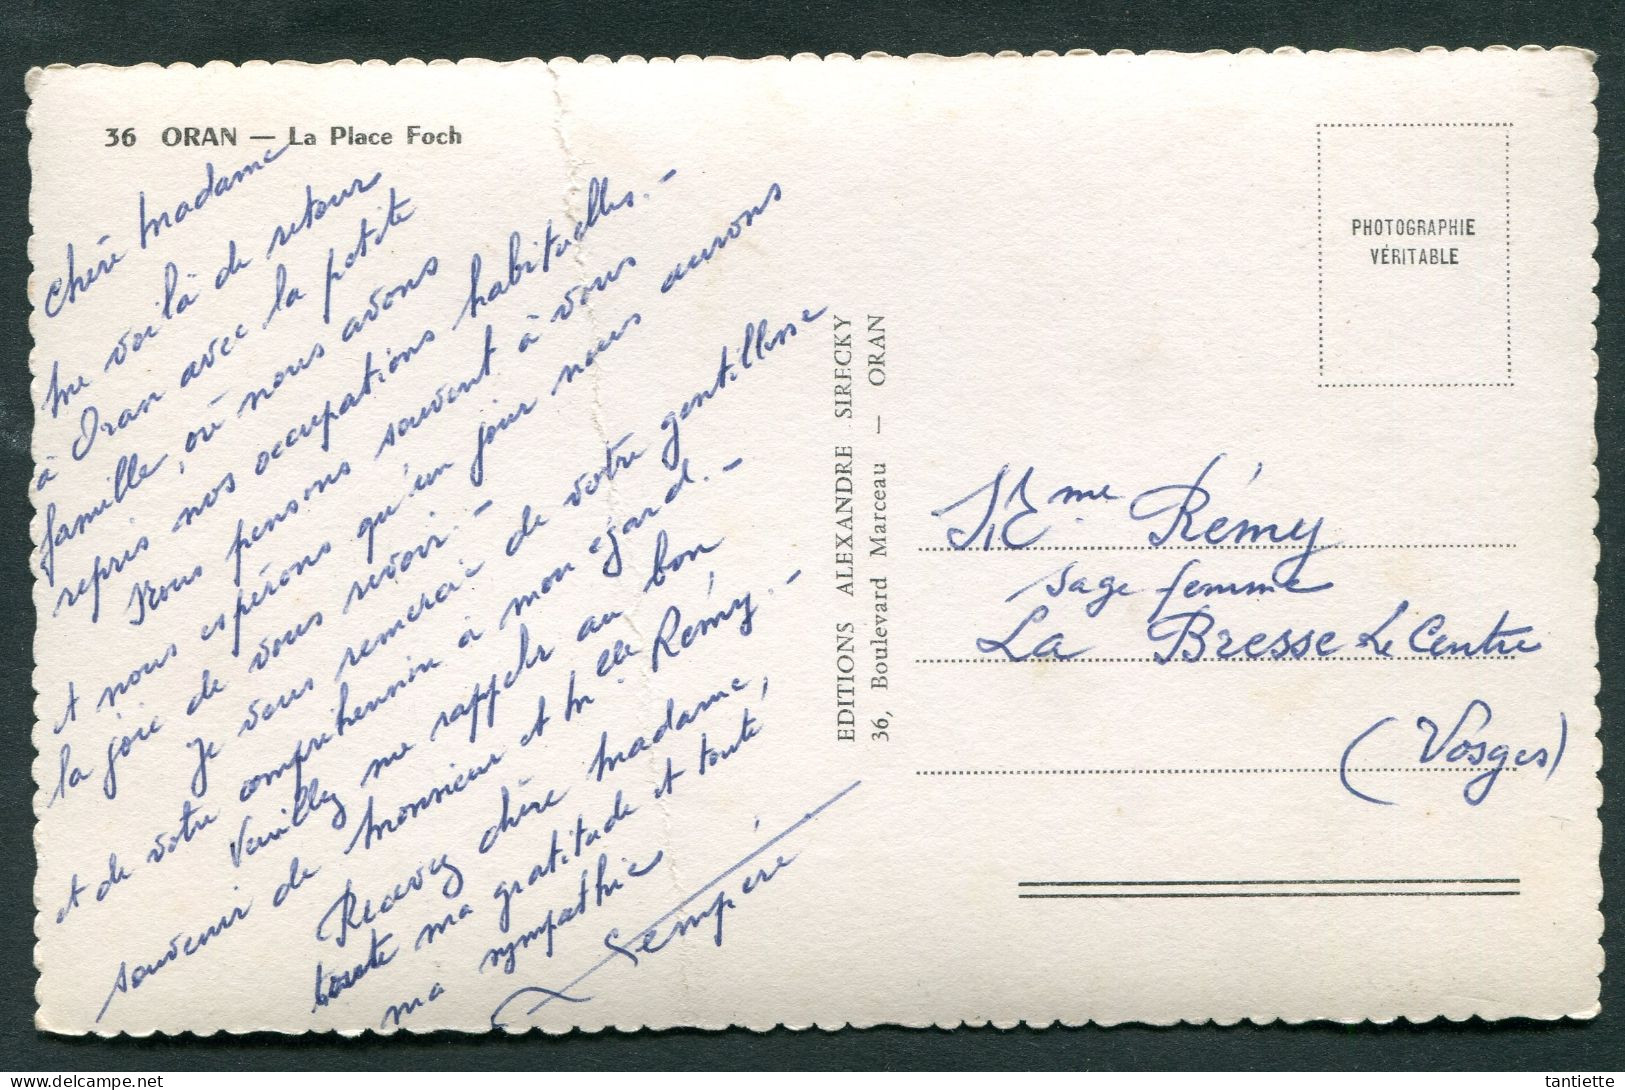 36 ORAN — La Place Foch
Chère Madame
Me voilà de retour
à Oran avec la petite
famille, où nous avons
repris nos occupations habituelles. –
Nous pensons souvent à vous
et nous espérons qu'un jour nous aurons
la joie de vous revoir. –
Je vous remercie de votre gentillesse
et de votre compréhension à mon égard. –
Veuillez me rappeler au bon
souvenir de Monsieur et Melle Rémy. –
Recevez chère Madame,
toute ma gratitude et toute
ma sympathie
Sempéré
EDITIONS ALEXANDRE SIRECKY
36, Boulevard Marceau — ORAN
PHOTOGRAPHIE
VÉRITABLE
Rémy
sage femme
La Bresse Le Centre
(Vosges)
tantiette